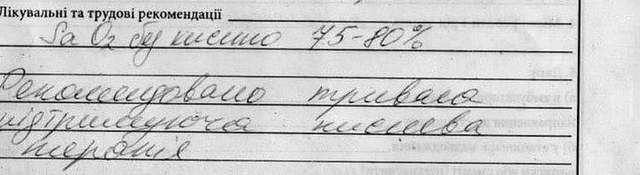 Лікувальні та трудові рекомендації
Sa O₂ бу кисню 75-80%
Рекомендовано тривала
підтримуюча киснева
терапія